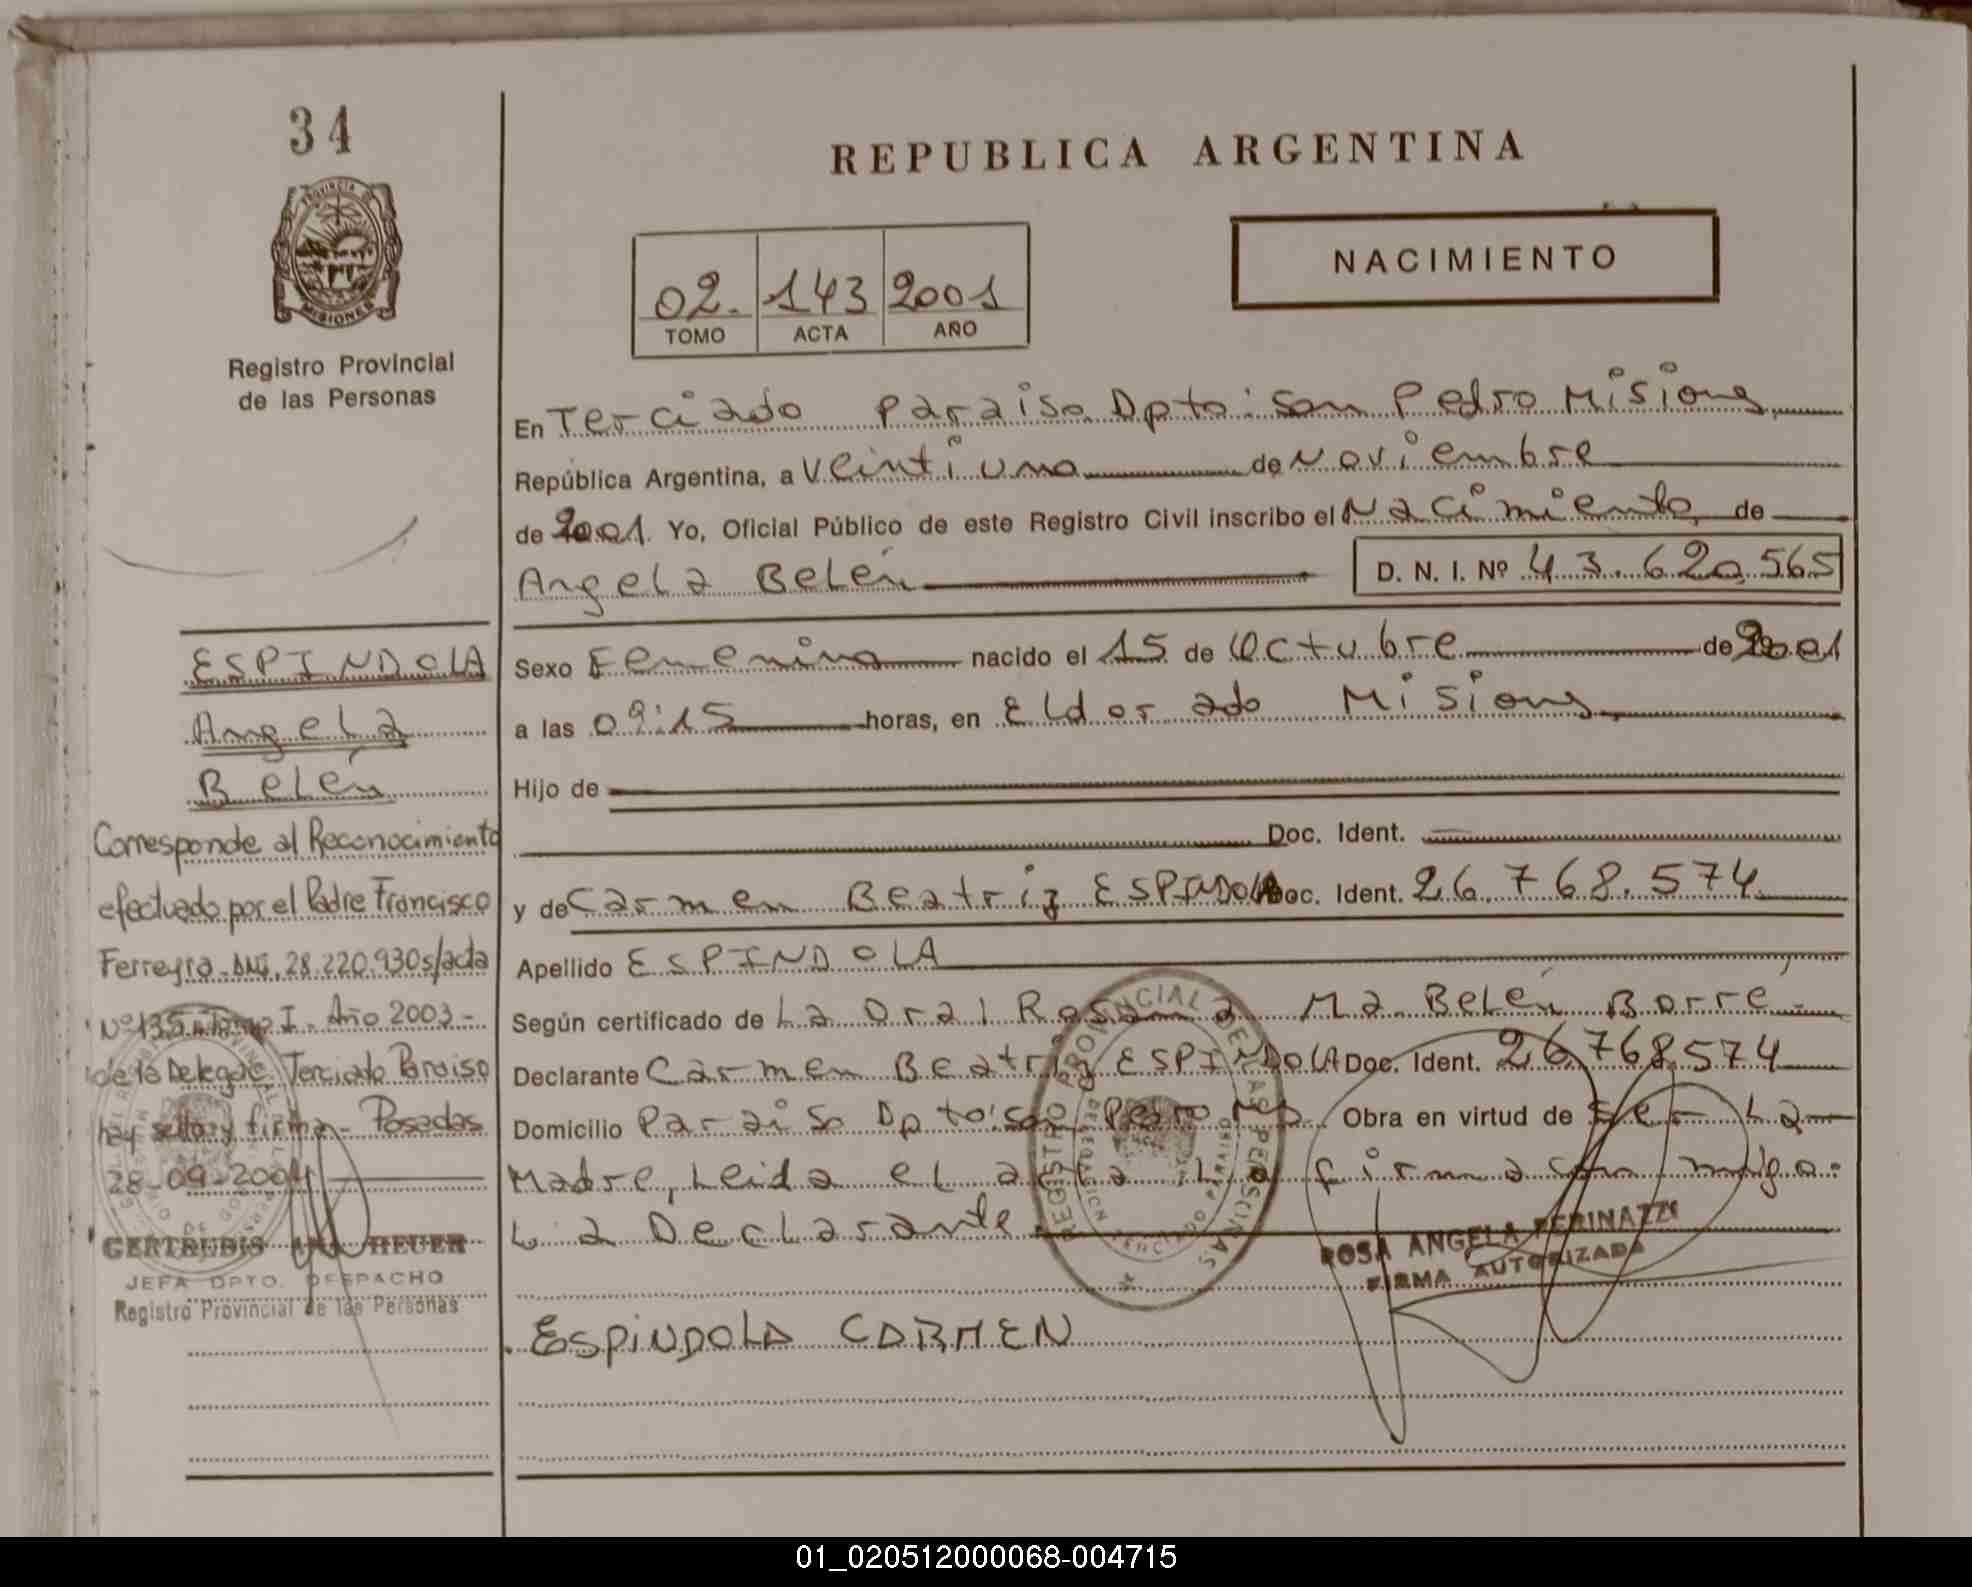 34
PROVINCIA DE
MISIONES
Registro Provincial
de las Personas
REPUBLICA ARGENTINA
02. 143 2001
TOMO ACTA AÑO
NACIMIENTO
En Terciado Paraiso Dpto: San Pedro Misiones
República Argentina, a Veintiuno de Noviembre
de 2001. Yo, Oficial Público de este Registro Civil inscribo el Nacimiento de
Angela Belén D. N. I. Nº 43.620.565
Sexo Femenino nacido el 15 de Octubre de 2001
a las 09:15 horas, en Eldorado Misiones
Hijo de
Doc. Ident.
y de Carmen Beatriz ESPINDOLA Doc. Ident. 26.768.574
Apellido ESPINDOLA
Según certificado de La Dra. Rosana Ma. Belén Borré
Declarante Carmen Beatriz ESPINDOLA Doc. Ident. 26768.574
Domicilio Paraiso Dpto: San Pedro Ms. Obra en virtud de Ser La
Madre, Leida el acta, La firma conmigo:
La Declarante
ESPINDOLA CARMEN
ROSA ANGELA PERINAZZI
FIRMA AUTORIZADA
REGISTRO PROVINCIAL DE LAS PERSONAS
ESPINDOLA
Angela
Belén
Corresponde al Reconocimiento
efectuado por el Padre Francisco
Ferreyra. DNI. 28.220.930 s/acta
Nº 135 Tomo I. Año 2003-
de la Delegac. Terciado Paraiso
hay sello y firma- Posadas
28-09-2004
GERTRUDIS HEUER
JEFA DPTO. DESPACHO
Registro Provincial de las Personas
01_020512000068-004715